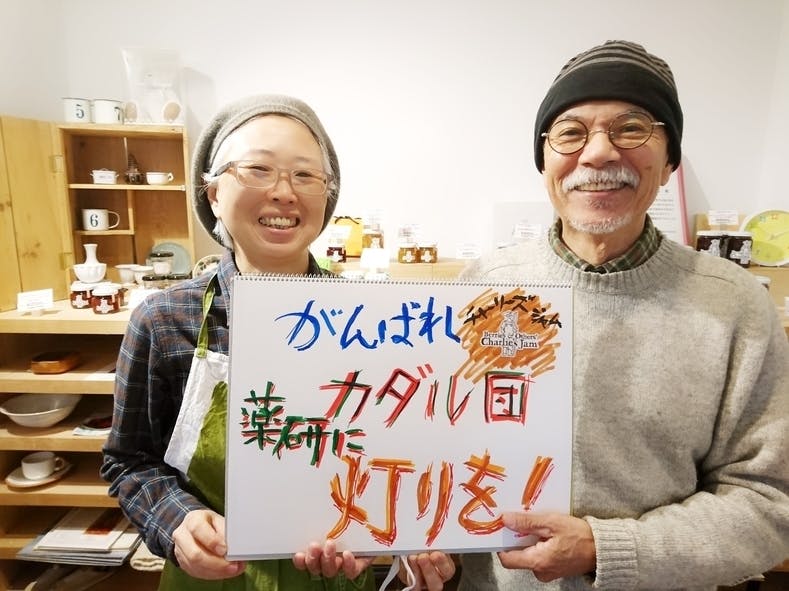 がんばれ
チャーリーズジャム
Berries & Others'
Charlie's Jam
カダル団
薬研に
灯りを!
5
7
6